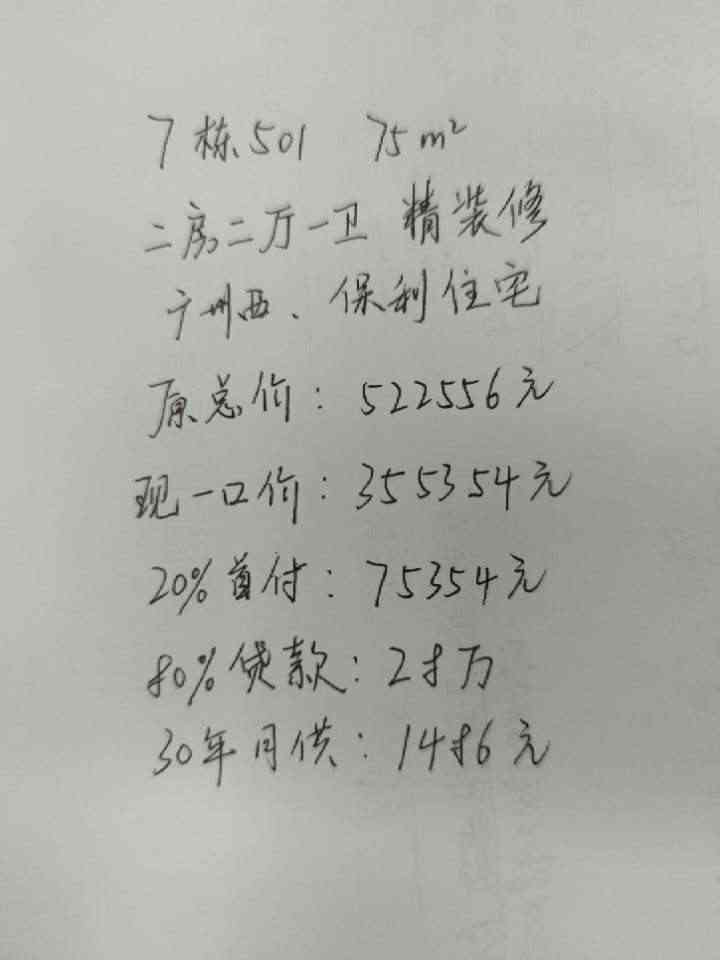 7栋501 75m²
二房二厅一卫 精装修
广州西、保利住宅
原总价：522556元
现一口价：355354元
20%首付：75354元
80%贷款：28万
30年月供：1486元